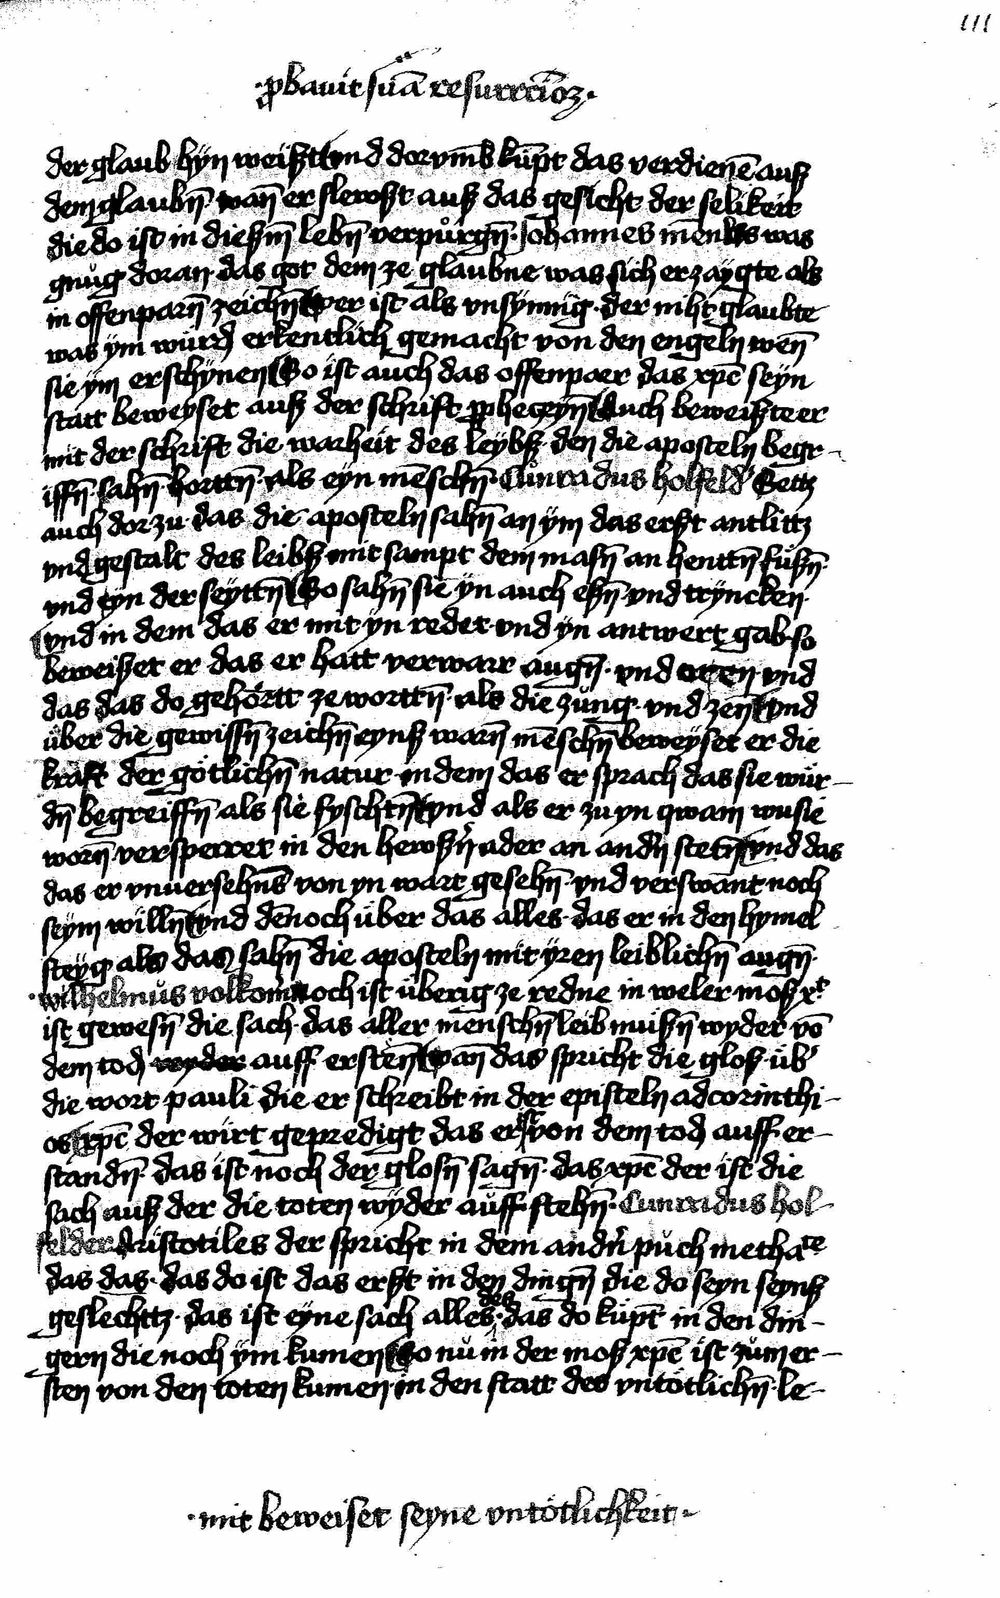 111
·ꝓbauit suā resurrectōꝫ·
der glaub hyn weiſzt vnd dorvmb kūpt das verdienē auſz
dem glaubn̄· wan̄ er slewſzt auſz das gesicht der selikeit
die do ist in dieſzm̄ lebn̄ verpůrgn̄· Johannes
gnůg doran· das got dem ze glaubne was sich erzaygte als
in offenparn̄ zeichn̄ wer ist als vnsynnig· der niht glaubte
was ym würd erkentlich gemacht von den engeln wen̄
sie ym erschynen So ist auch das offenpaer das xpc̄ seyn
statt beweyset auſz der schrift ꝓpheceyn̄ Auch beweiſzte er
mit der schrift die warheit des leybſz· den die aposteln begr-
iffn̄· sahn̄· hortn̄· als eyn mēschn̄· Cůnradus holfeld' Setz
auch dor zu· das die aposteln sahn̄ an ym das erſzt antlittz
vnd gestalt des leibſz mit sampt dem masn̄ an hentn̄ fuſzn̄·
vnd yn der seyttn̄ So sahn̄ sie yn auch eſzn̄ vnd tryncken·
vnd in dem das er mit yn redet· vnd yn antwert gab· so
beweiſzet er das er hatt verwarr augn̄· vnd oren vnd
das das do gehörtt ze wortn̄· als die zůng· vnd zen vnd
über die gewissn̄ zeichn̄ eynſz warn̄ mēschn̄ beweyset er die
kraft der götlichn̄ natur· in dem das er sprach das sie wür-
dn̄ begreiffn̄ als sie fyschtn̄ vnd als er zu yn qwam wu sie
worn̄ versperret in den hewſzn̄ ader an andn̄ stetn̄ vnd das
das er vnuersehns von yn wart gesehn̄· vnd verswant noch
seym willn̄ vnd dēnoch über das alles· das er in den hymel
steyg als das sahn̄ die aposteln mit yren leiblichn̄ augn̄·
·wilhelmůs volkom noch ist überig ze redne in weler mosz xt
ist gewesn̄ die sach· das aller menschn̄ leib muſzn̄ wyder vō
dem tod wyder auff· erstēn̄ wan̄ das spricht die glos· üb'
die wort pauli die er schreibt in der episteln ad corinthi-
os xpc̄ der wirt gepredigt das er ist von dem tod auff· er-
standn̄· das ist noch der glosn̄ sagn̄· das xpc̄ der ist die
sach auſz der die toten wyder auff· stehn̄· Cunradus hol-
felder Aristotiles der spricht in dem andn̄ půch metha
das das· das do ist das erſzt in den dingn̄ die do seyn seynſz
geslechttz· das ist eyne sach alles des· das do kūpt in den din-
gern die noch ym kumen So nů in der mosz xpc̄ ist zům er-
sten von den toten kumen· in den statt des vntötlichn̄· le-
·mit beweiset seyne vntötlichkeit·